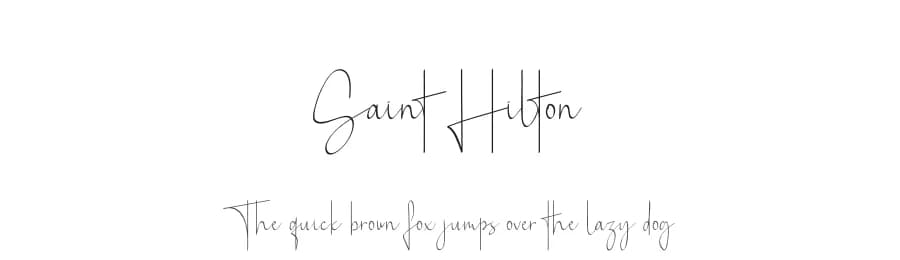 Saint Hilton
The quick brown fox jumps over the lazy dog